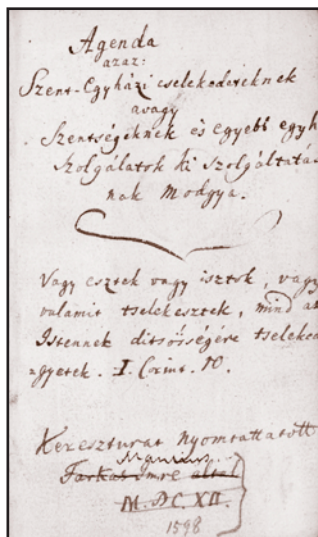 Agenda
azaz:
Szent-Egyházi cselekedeteknek
avagy
Szentségeknek és egyebb egyh
Szolgálatok ki Szolgáltatá-
nak Modgya.
Vagy esztek vagy isztok, vagy
valamit tselekesztek, mind az
Istennek ditsösségére tseleked
gyetek. I. Corint. 10.
Kereszturat nyomtattatott
Manlius
Farkas Imre által
M.DC.XII.
1598